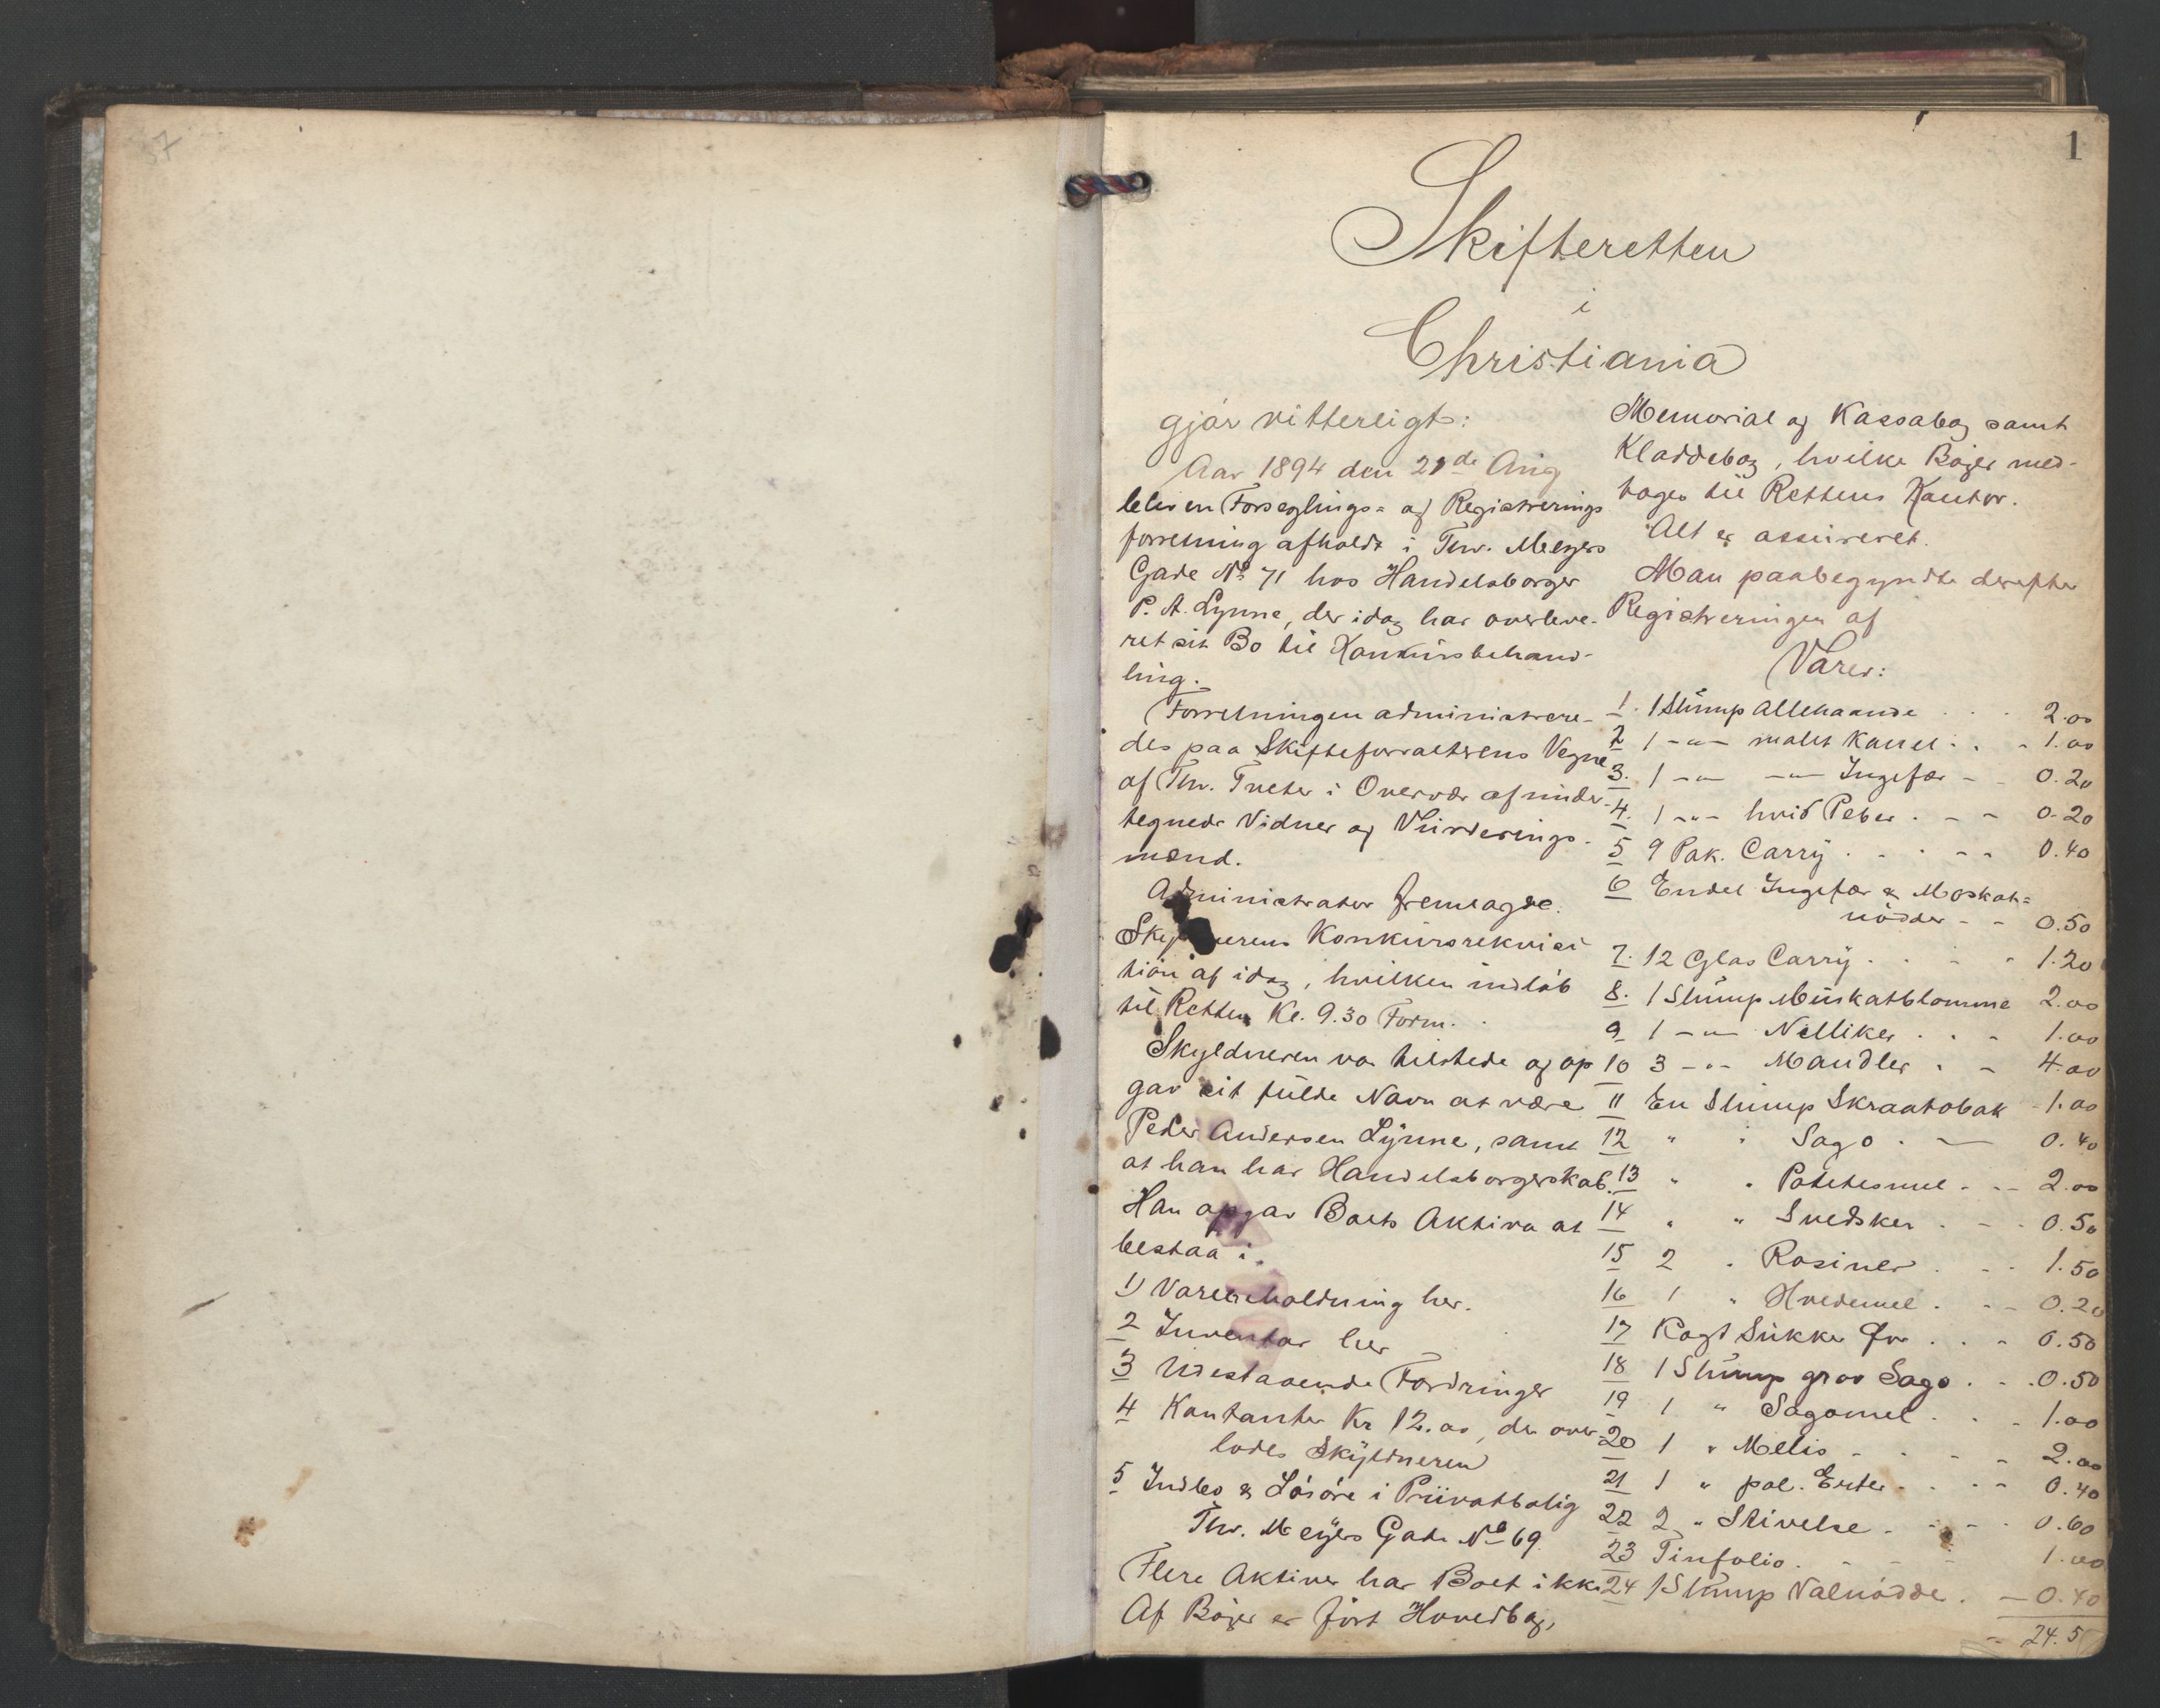 37
1
Skifteretten
i
Christiania
gjør vitterligt:
Aar 1894 den 21de Aug
blev en Forseglings- og Registrerings
forretning afholdt i Thv. Meyers
Gade No 71 hos Handelsborger
P. A. Lynne, der idag har overleve-
ret sit Bo til Konkursbehand-
ling.
Forretningen administrere-
des paa Skifteforvalterens Vegne
af Thv. Tveter i Overvær af under-
tegnede Vidner og Vurderings-
mænd.
Administrator fremlagde
Skyldnerens Konkursrekvisi
tion af idag, hvilken indløb
til Retten Kl. 9.30 Form.
Skyldneren var tilstede og op
gav sit fulde Navn at være
Peder Andersen Lynne, samt
at han har Handelsborgerskab.
Han opgav Boets Aktiva at
bestaa i:
1) Varebeholdning her.
2 Inventar her
3 Udestaaende Fordringer
4 Kontanter Kr 12.00, der over-
lodes Skyldneren
5 Indbo & Løsøre i Privatbolig
Thv. Meyers Gade No 69.
Flere Aktiver har Boet ikke
Af Bøger er ført Hovedbog,
Memorial og Kassabog samt
Kladdebog, hvilke Bøger med-
toges til Rettens Kontor.
Alt er assureret.
Man paabegyndte derefter
Registreringen af
Varer:
1. 1 Slump Allehaande . . . 2.00
2 1 -"- malet Kanel . . - 1.00
3. 1 -"- -"- Ingefær - - 0.20
4. 1 -"- hvid Peber . - - 0.20
5 9 Pak. Carry . - . - - 0.40
6 Endel Ingefær & Moskat=
nødder - - 0.50
7. 12 Glas Carry . . . . 1.20
8. 1 Slump Muskatblomme 2.00
9 1 -"- Nelliker . . - 1.00
10 3 -"- Mandler . - 4.00
11 En Slump Skraatobak - 1.00
12 " " Sago . - 0.40
13 " " Potetesmel . - - 2.00
14 " " Svedsker . - - 0.50
15 2 " Rosiner . - - 1.50
16 1 " Hvedemel . - - 0.20
17 Kogt Sukker for . . . 0.50
18 1 Slump grov Sago . - . 0.50
19 1 " Sagomel . . . 1.00
20 1 " Melis - - - - 2.00
21 1 " pol. Erter . . - - 0.40
22 2 " Stivelse . - - - 0.60
23 Tinfolio . - - - 1.00
24 1 Slump Valnødde . - 0.40
- 24.5